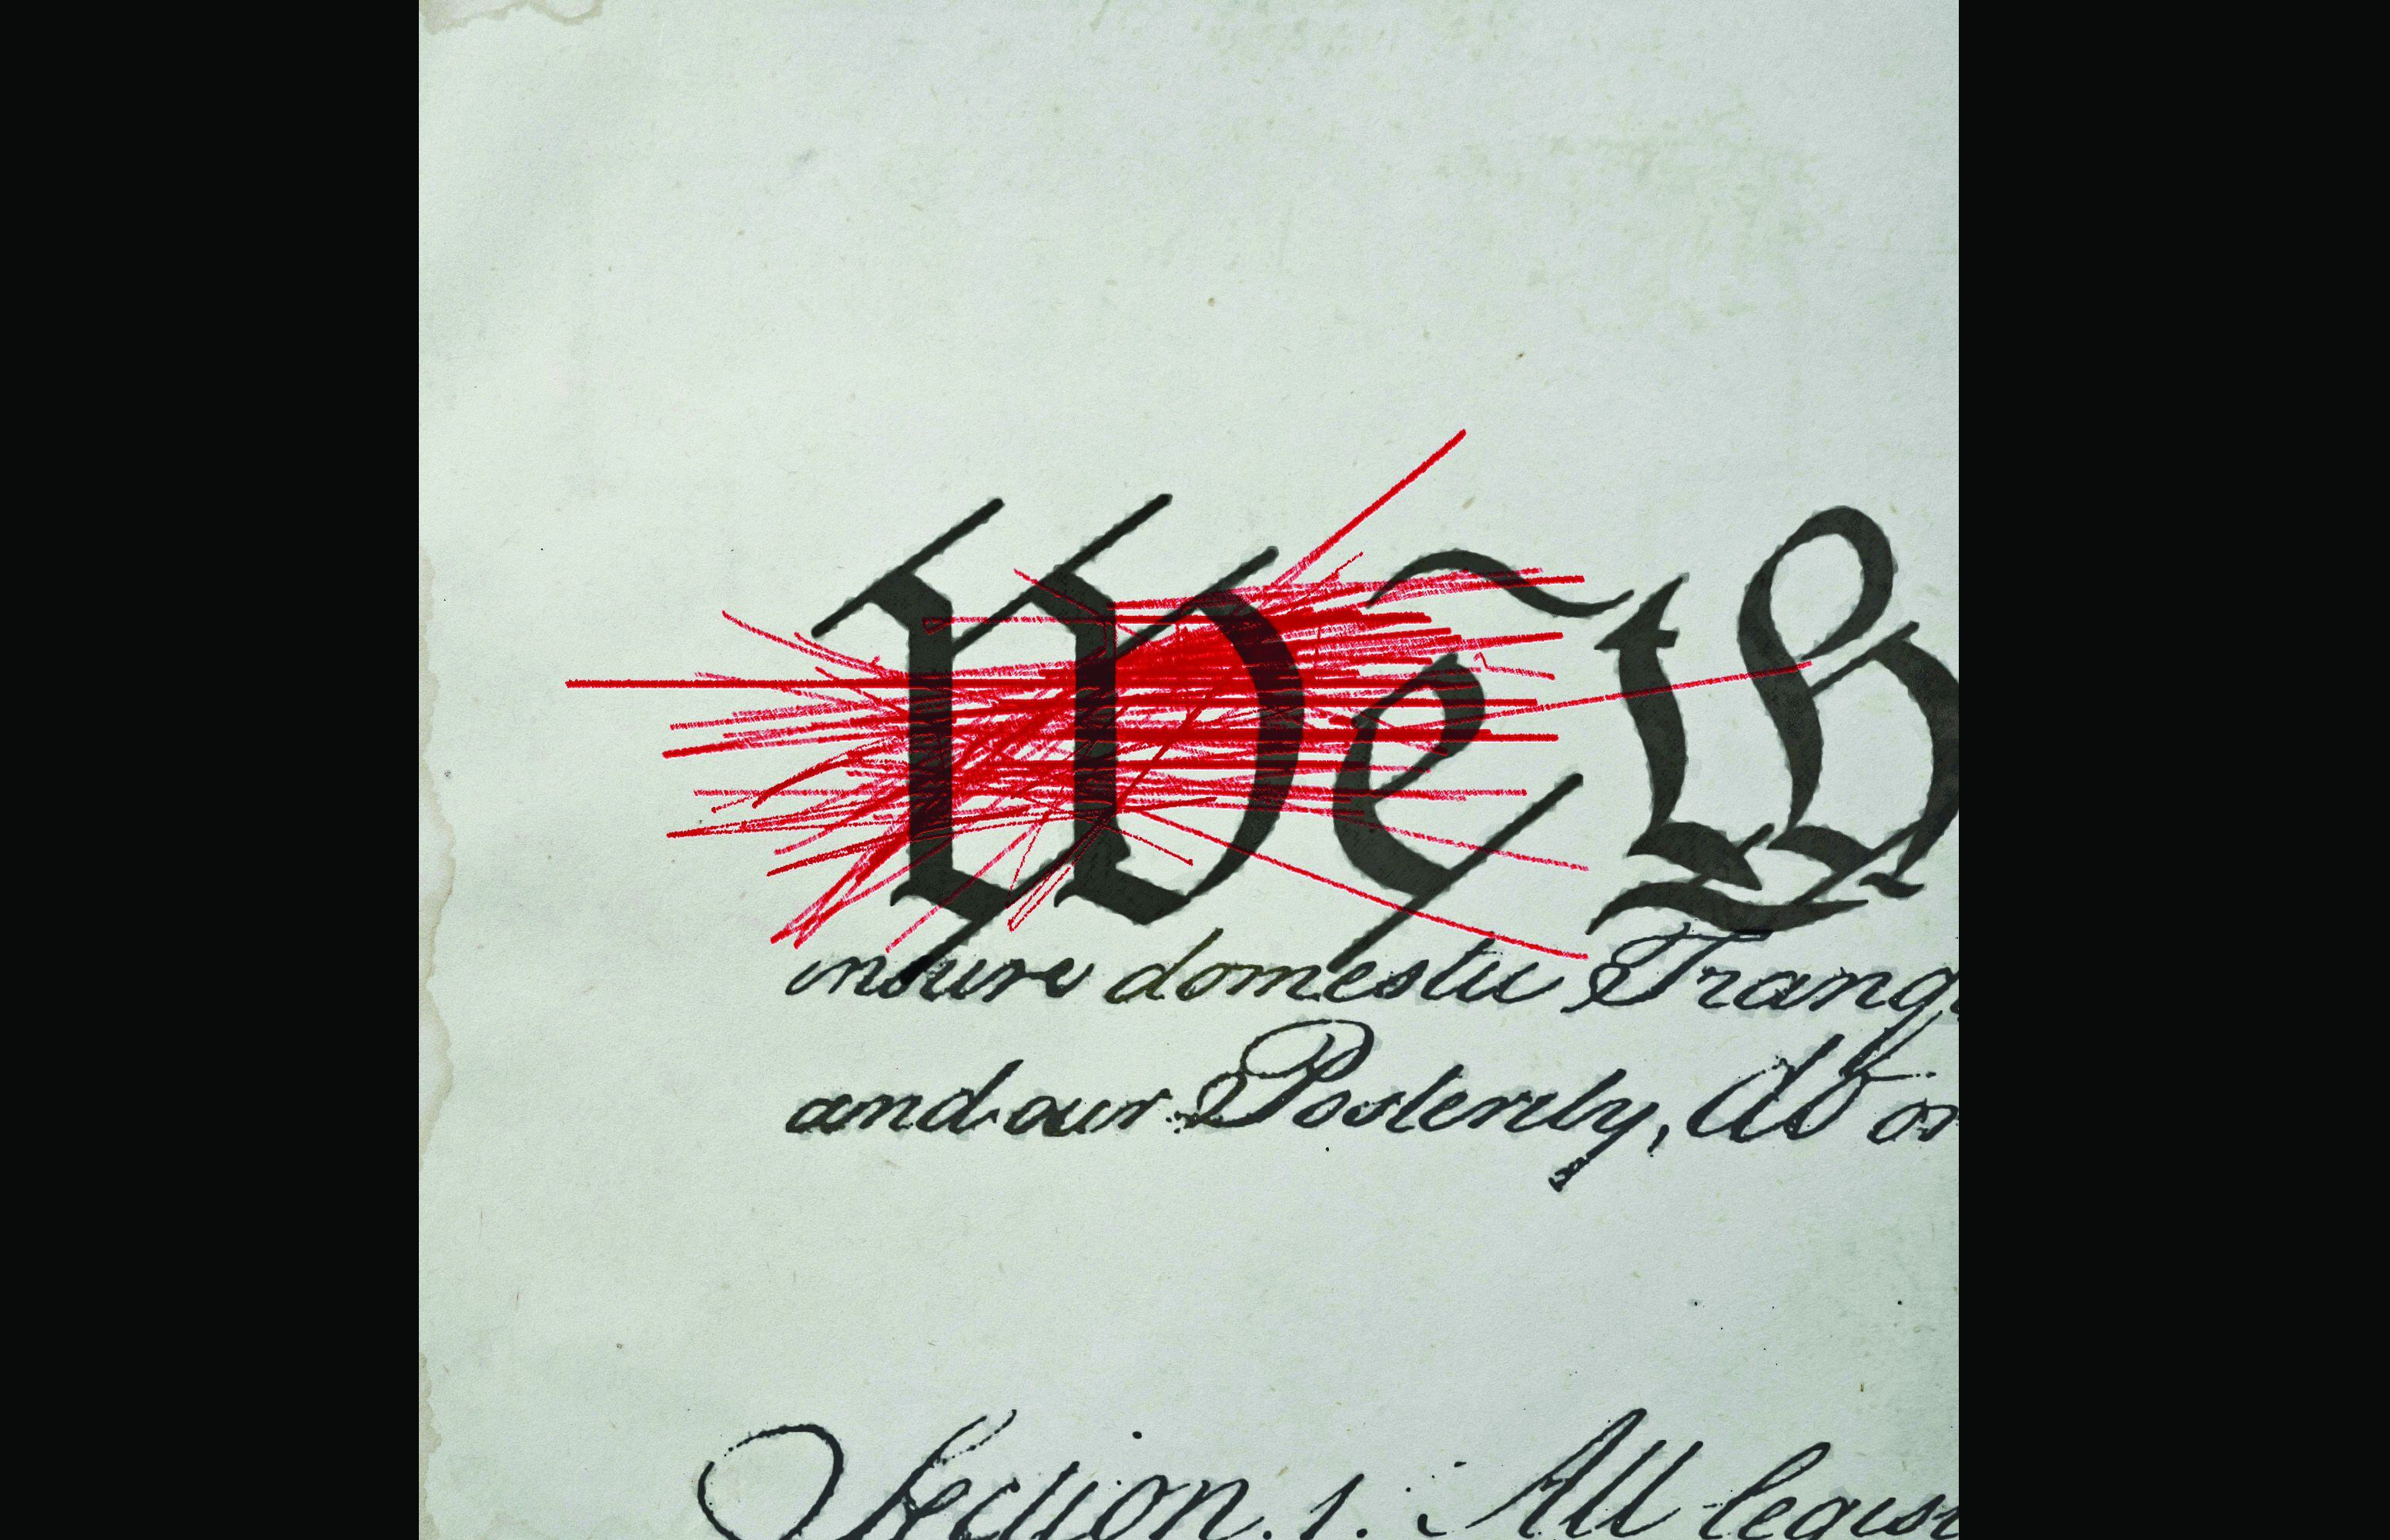 We
insure domestic Tranq
and our Posterity, do or
Section. 1. All legisl